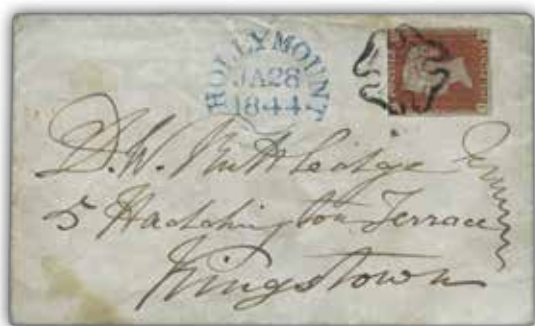 HOLLYMOUNT
JA28
1844
D. W. Ruttledge Esq
5 Haddington Terrace
Kingstown